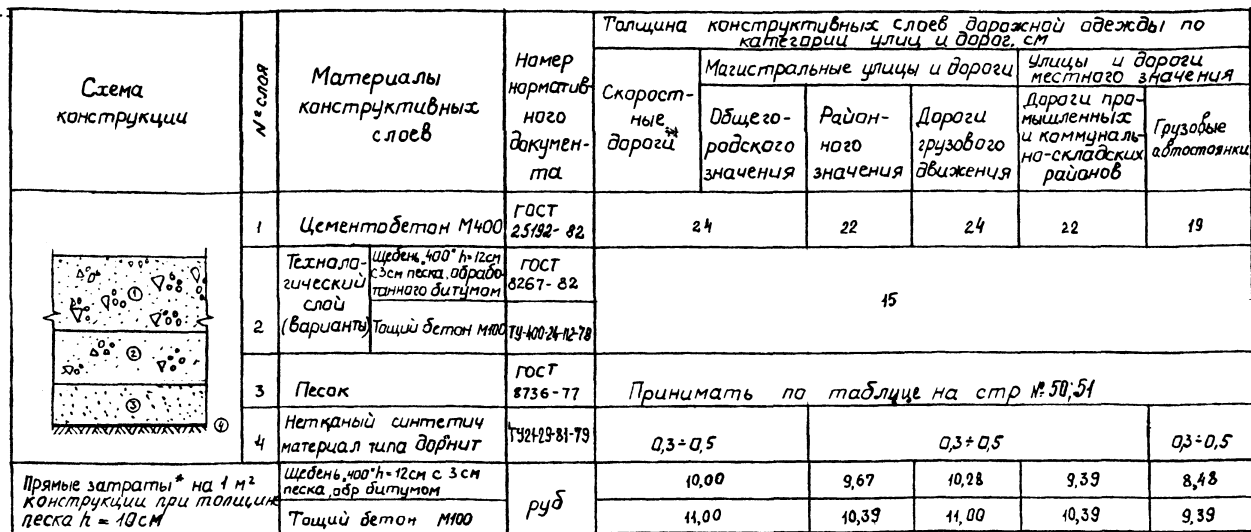 Схема
конструкции
№ слоя
Материалы
конструктивных
слоев
Номер
норматив-
ного
докумен-
та
Толщина конструктивных слоев дорожной одежды по
категории улиц и дорог, см
Скорост-
ные
дороги*
Магистральные улицы и дороги
Общего-
родского
значения
Район-
ного
значения
Дороги
грузового
движения
Улицы и дороги
местного значения
Дороги про-
мышленных
и коммуналь-
но-складских
районов
Грузовые
автостоянки
1
Цементобетон М400
ГОСТ
25192-82
24
22
24
22
19
2
Техноло-
гический
слой
(варианты)
Щебень „400" h=12см
с 3см песка, обрабо-
танного битумом
ГОСТ
8267-82
Тощий бетон М100
ТУ-400-24-112-78
15
3
Песок
ГОСТ
8736-77
Принимать по таблице на стр № 50; 51
4
Нетканый синтетич
материал типа дорнит
ТУ21-29-81-79
0,3÷0,5
0,3÷0,5
0,3÷0,5
1
2
3
4
Прямые затраты* на 1 м²
конструкции при толщине
песка h = 10см
Щебень „400" h=12см с 3 см
песка, обр битумом
руб
10,00
9,67
10,28
9,39
8,48
Тощий бетон М100
11,00
10,39
11,00
10,39
9,39